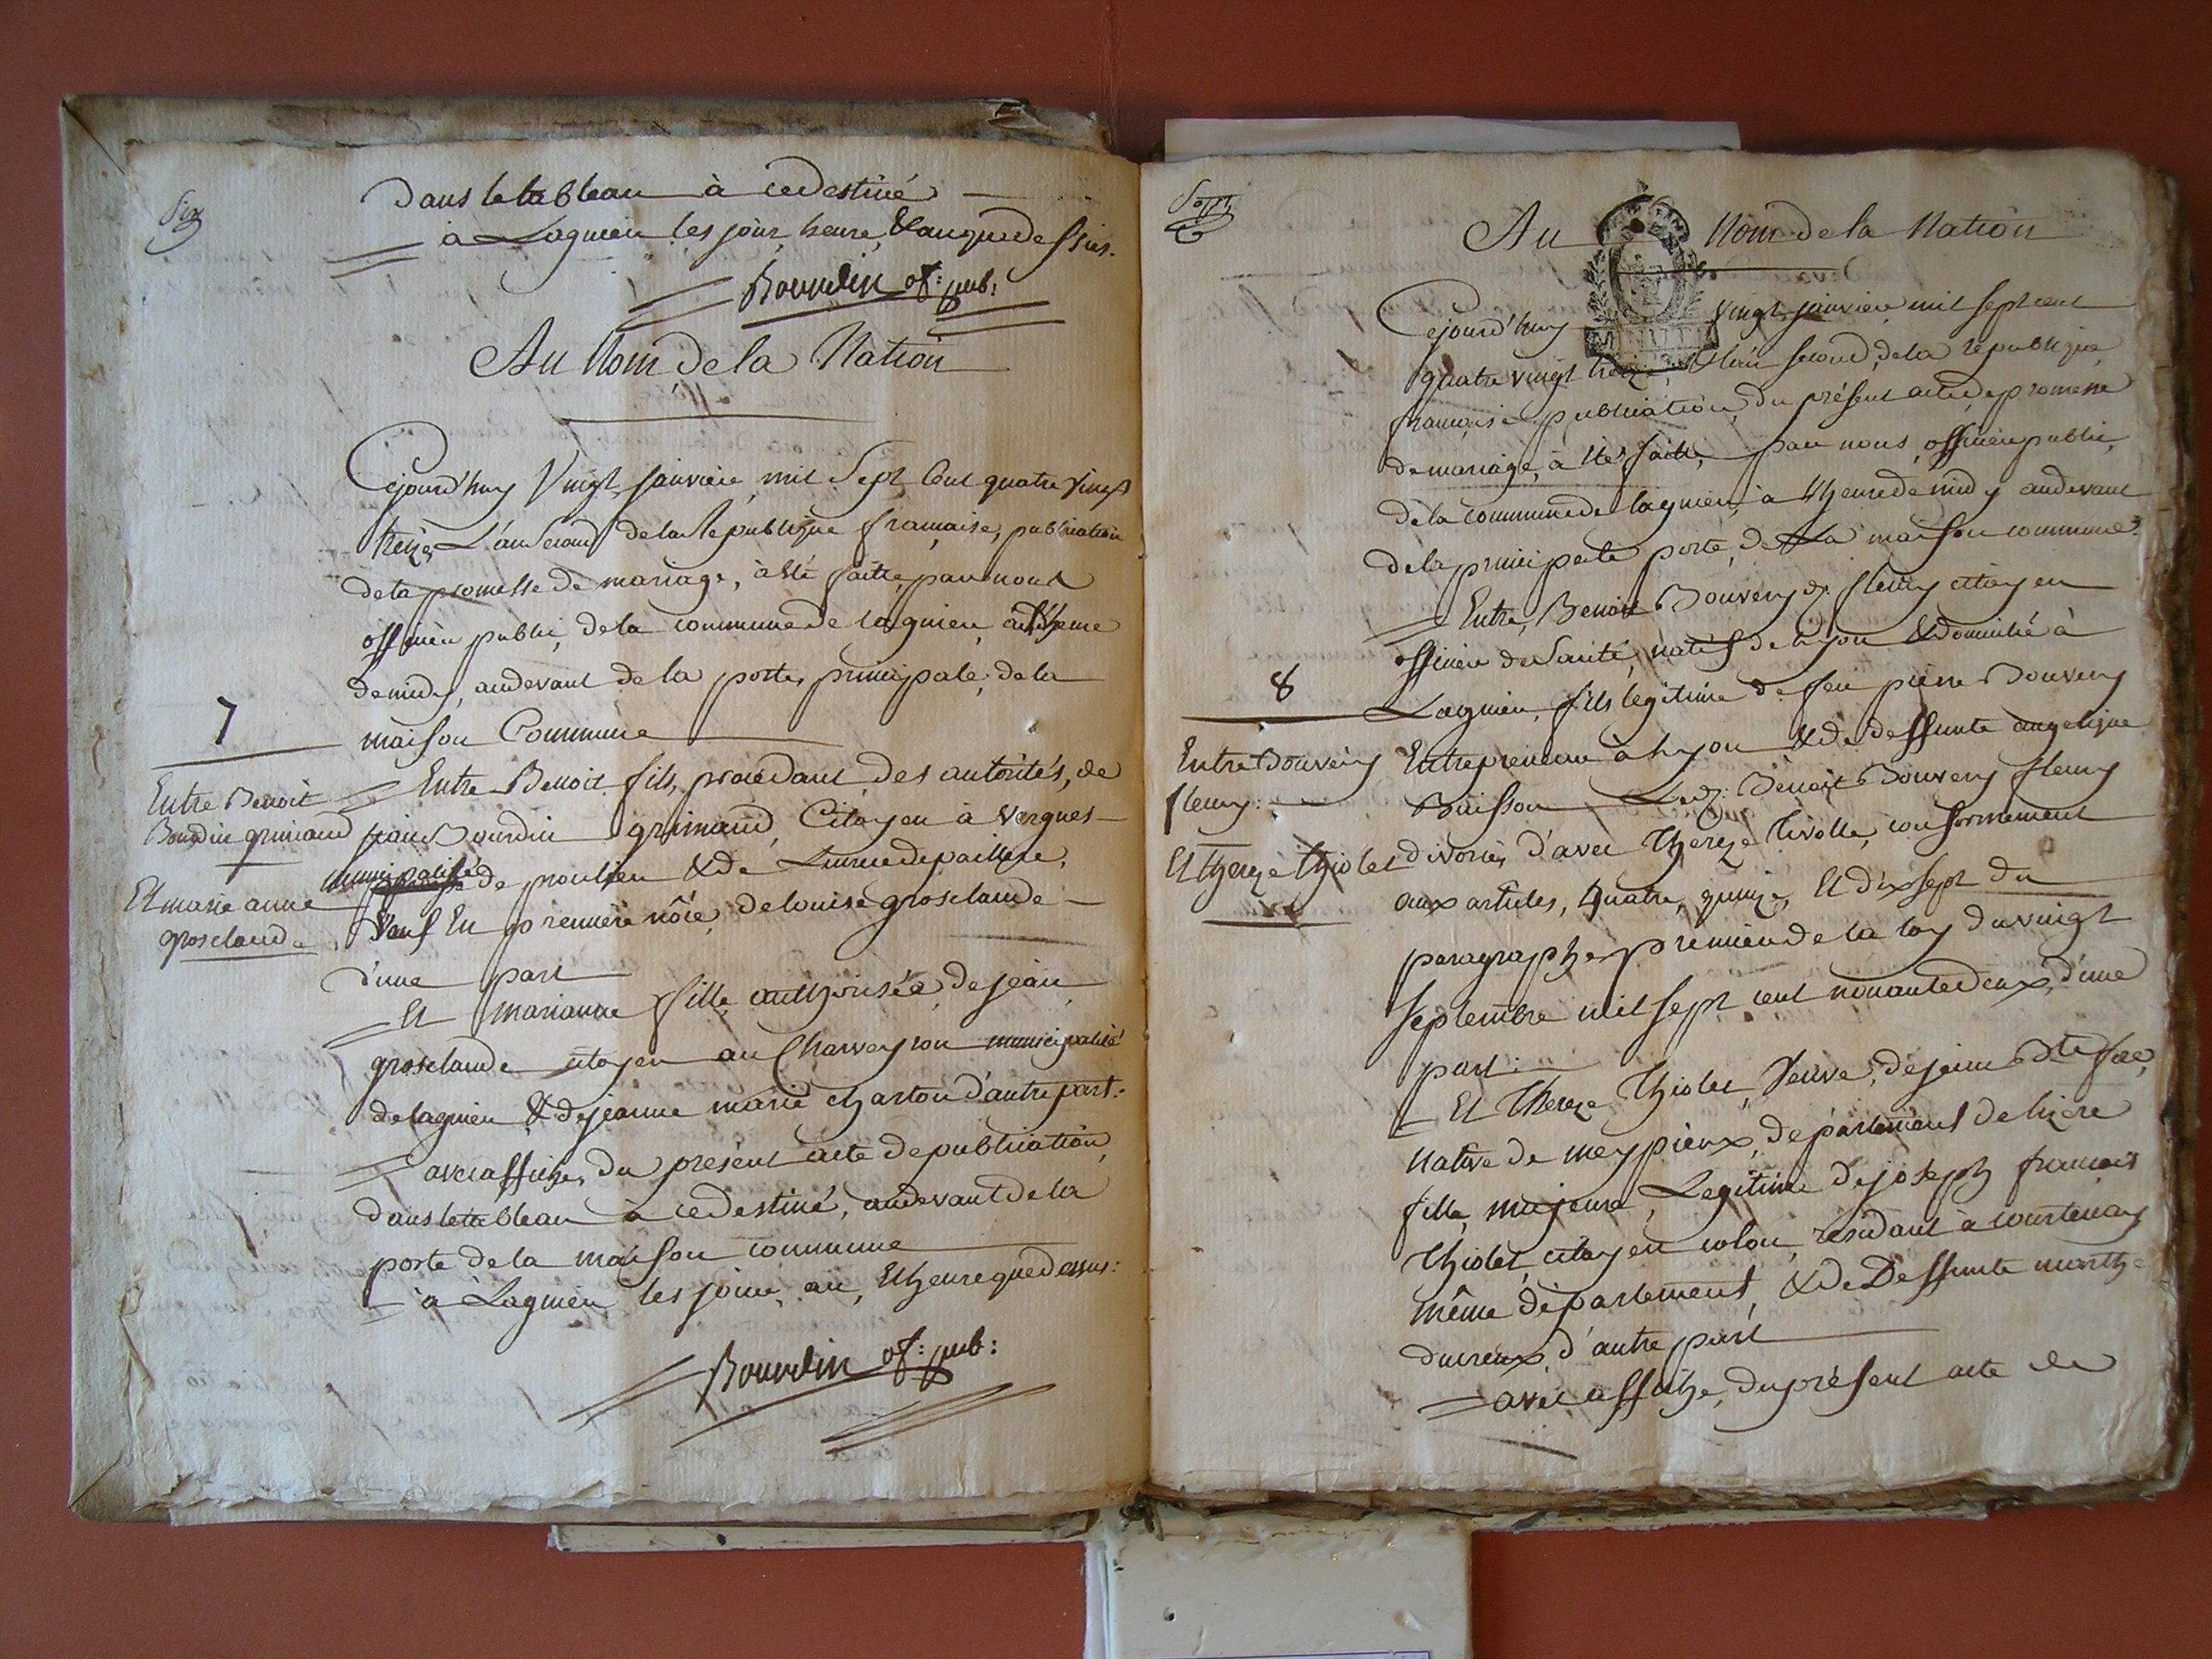 Six
Dans le tableau à ce destiné
à Lagnieu les jour, heure, & an que dessus.
Bourdin of: pub:
Au Nom de la Nation
Cejourd'huy Vingt janvier mil Sept Cent quatre vingt
treize L'an Second de la Republique française, publication
de la promesse de mariage, à été faitte, par nous
officier public, de la commune de lagnieu, heure
de midy, audevant de la porte, principale, de la
maison Commune
7
Entre Benoit
Bourdin grimaud
Et marie anne
grosclaude
Entre Benoit fils, procédant des autorités, de
Bourdin grimaud, Citoyen à Vergnes
municipalité de proulieu & de
Veuf En premiere nôce, de louise grosclaude
d'une part
Et marianne fille authorisée, de jean
grosclaude citoyen au Charveyron municipalité
de lagnieu & de jeanne marie charton d'autre part:
avec affiche, du present acte de publication,
dans le tableau à ce destiné, audevant de la
porte de la maison commune
à Lagnieu les jour, an, Et heure que dessus:
Bourdin of: pub:
Sept
Au Nom de la Nation
Cejourd'huy vingt janvier mil sept cent
quatre vingt treize, & l'an second, de la republique
française publication, du présent acte, de promesse
de mariage, à été faitte, par nous, officier public,
de la commune de lagnieu, à heure de midy audevant
de la principale porte, de La maison commune
8
Entre Bouvery
fleury:
Et thereze thiolet
Entre, Benoit Bouvery d: fleury citoyen
officier de Santé, natif de lyon & domicilié à
Lagnieu, fils legitime de feu pierre Bouvery
Entrepreneur à lyon & de deffunte angelique
Buisson Led: Benoit Bouvery fleury
divorcé, d'avec thereze tivolle, conformement
aux articles, quatre, quinze, Et dix sept du
paragraphe, premier de la loy du vingt
septembre mil sept cent nonante deux, d'une
part:
Et thereze thiolet, Veuve, de jean
native de meypieux, département de lizere
fille, majeure, Legitime de joseph francois
thiolet, citoyen colon, residant à courtenay
même département, & de Deffunte marthe
ducreux, d'autre part
avec affiche, du présent acte de